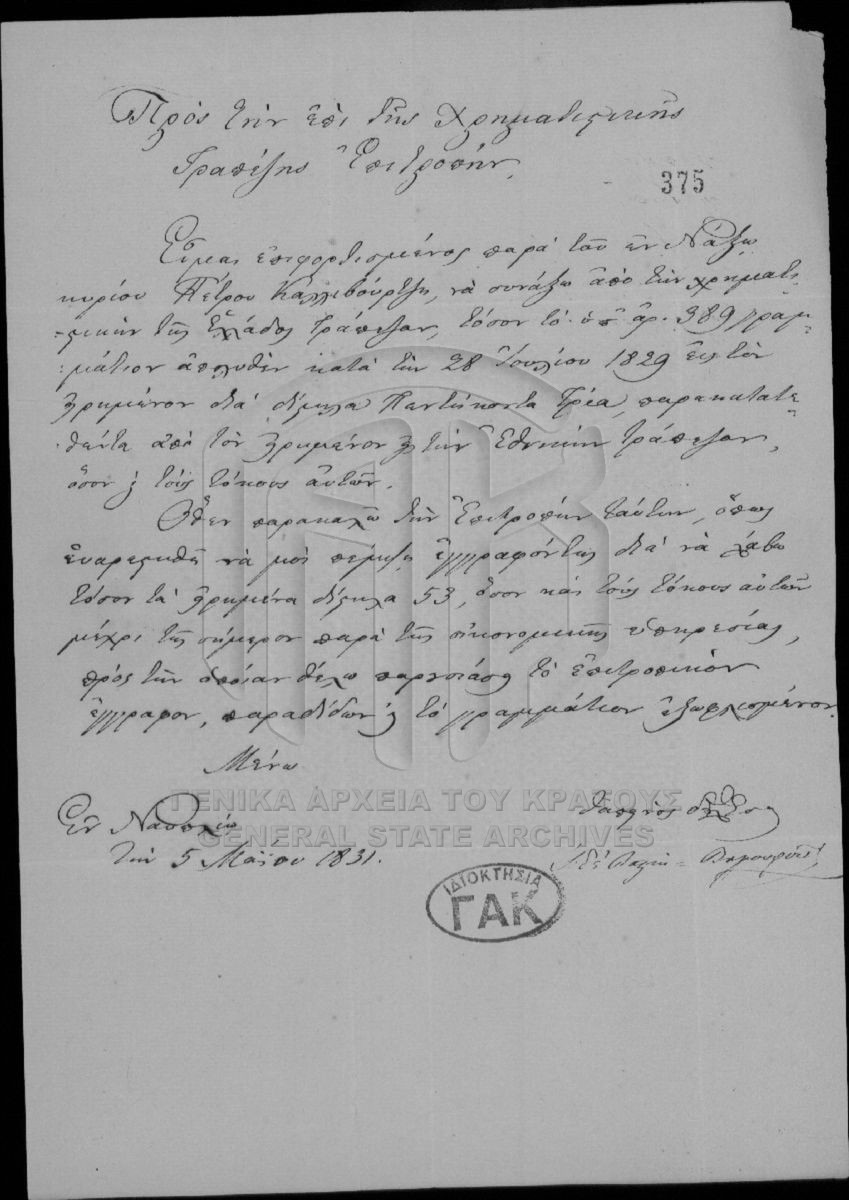 Πρὸς τὴν ἐπὶ τῆς Χρηματιστικῆς
Τραπέζης Ἐπιτροπήν.
375
Εἶμαι ἐπιφορτισμένος παρὰ τοῦ ἐν Νάξῳ
κυρίου Πέτρου Καλλιβούρτζη, νὰ συνάξω ἀπὸ τὴν χρηματι-
-στικὴν τῆς Ἑλλάδος τράπεζαν, τόσον τὸ ὑπ' ἀρ. 389 γραμ-
-μάτιον ἀπολυθὲν κατὰ τὴν 28 Ἰουλίου 1829 εἰς τὸν
εἰρημένον διὰ δίστηλα Πεντήκοντα τρία, παρακατατε-
-θέντα ἀπὸ τὸν εἰρημένον εἰς τὴν Ἐθνικὴν τράπεζαν,
ὅσον καὶ τοὺς τόκους αὐτῶν.
Ὅθεν παρακαλῶ τὴν Ἐπιτροπὴν ταύτην, ὅπως
εὐαρεστηθῇ νὰ μοὶ πέμψῃ ἔγγραφόν της διὰ νὰ λάβω
τόσον τὰ εἰρημένα δίστηλα 53, ὅσον καὶ τοὺς τόκους αὐτῶν
μέχρι τῆς σήμερον παρὰ τῆς οἰκονομικῆς ὑπηρεσίας,
πρὸς τὴν ὁποίαν θέλω παρησιάσῃ τὸ ἐπιτροπικόν
ἔγγραφον, παραδίδων καὶ τὸ γραμμάτιον ἐξωφλισμένον.
Μένω
Ἐν Ναυπλίῳ
τὴν 5 Μαΐου 1831.
ΓΕΝΙΚΑ ΑΡΧΕΙΑ ΤΟΥ ΚΡΑΤΟΥΣ
GENERAL STATE ARCHIVES
ΙΔΙΟΚΤΗΣΙΑ
ΓΑΚ